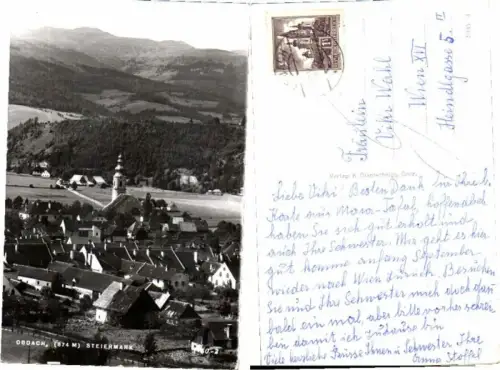 OBDACH, (874 M) STEIERMARK
Fräulein
Viki Wahl
Wien XVI
Heindlgasse 5. II
Liebe Viki! Besten Dank für Ihre l.
Karte aus Maria-Tafel, hoffendlich
haben Sie sich gut erholt und
auch Ihre Schwester. Mir geht es hier
gut komme anfang September
wieder nach Wien zurück. Besuchen
Sie und Ihre Schwester mich doch
bald ein mal, aber vorher schrei-
ben damit ich zuhause bin
Viele herzliche Grüsse Ihnen u. Schwester Ihre
Anna